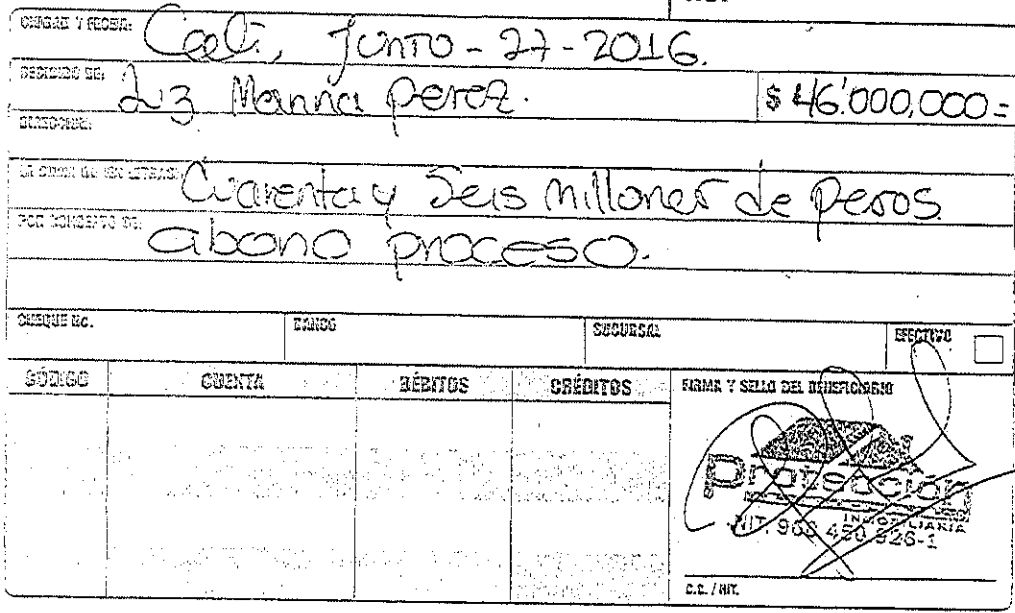 CIUDAD Y FECHA: Cali, Junio - 27 - 2016.
RECIBIDO DE: Luz Marina Perez. $ 46'000,000=
DIRECCION:
LA SUMA DE (EN LETRAS) Cuarenta y Seis millones de pesos
POR CONCEPTO DE: abono proceso.
CHEQUE No. BANCO SUCURSAL EFECTIVO
CÓDIGO CUENTA DÉBITOS CRÉDITOS FIRMA Y SELLO DEL BENEFICIARIO
protección
INMOBILIARIA
NIT. 900 450 526-1
C.C. / NIT.